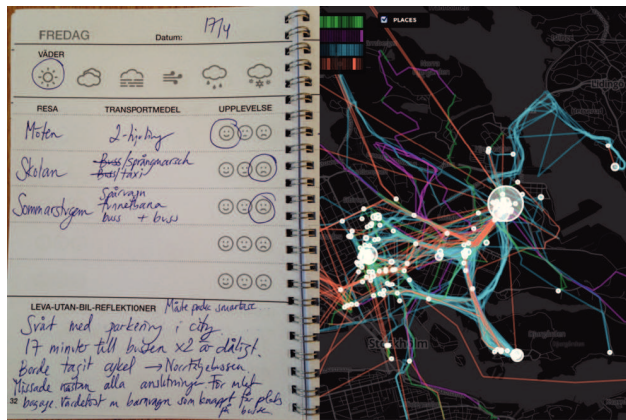 FREDAG
Datum: 17/4
VÄDER
RESA TRANSPORTMEDEL UPPLEVELSE
Möten 2-hjuling
Skolan Buss/språngmarsch
Bil/taxi
Sommarstugan Spårvagn
tunnelbana
buss + buss
LEVA-UTAN-BIL-REFLEKTIONER Måste packa smartare
Svårt med parkering i city.
17 minuter till bussen x2 är dåligt.
Borde tagit cykel → Norrtäljebussen.
Missade nästan alla anslutningar för mkt
bagage. Värdelöst m barnvagn som knappt får plats
på bussen
32
PLACES
Lidingö
Stockholm